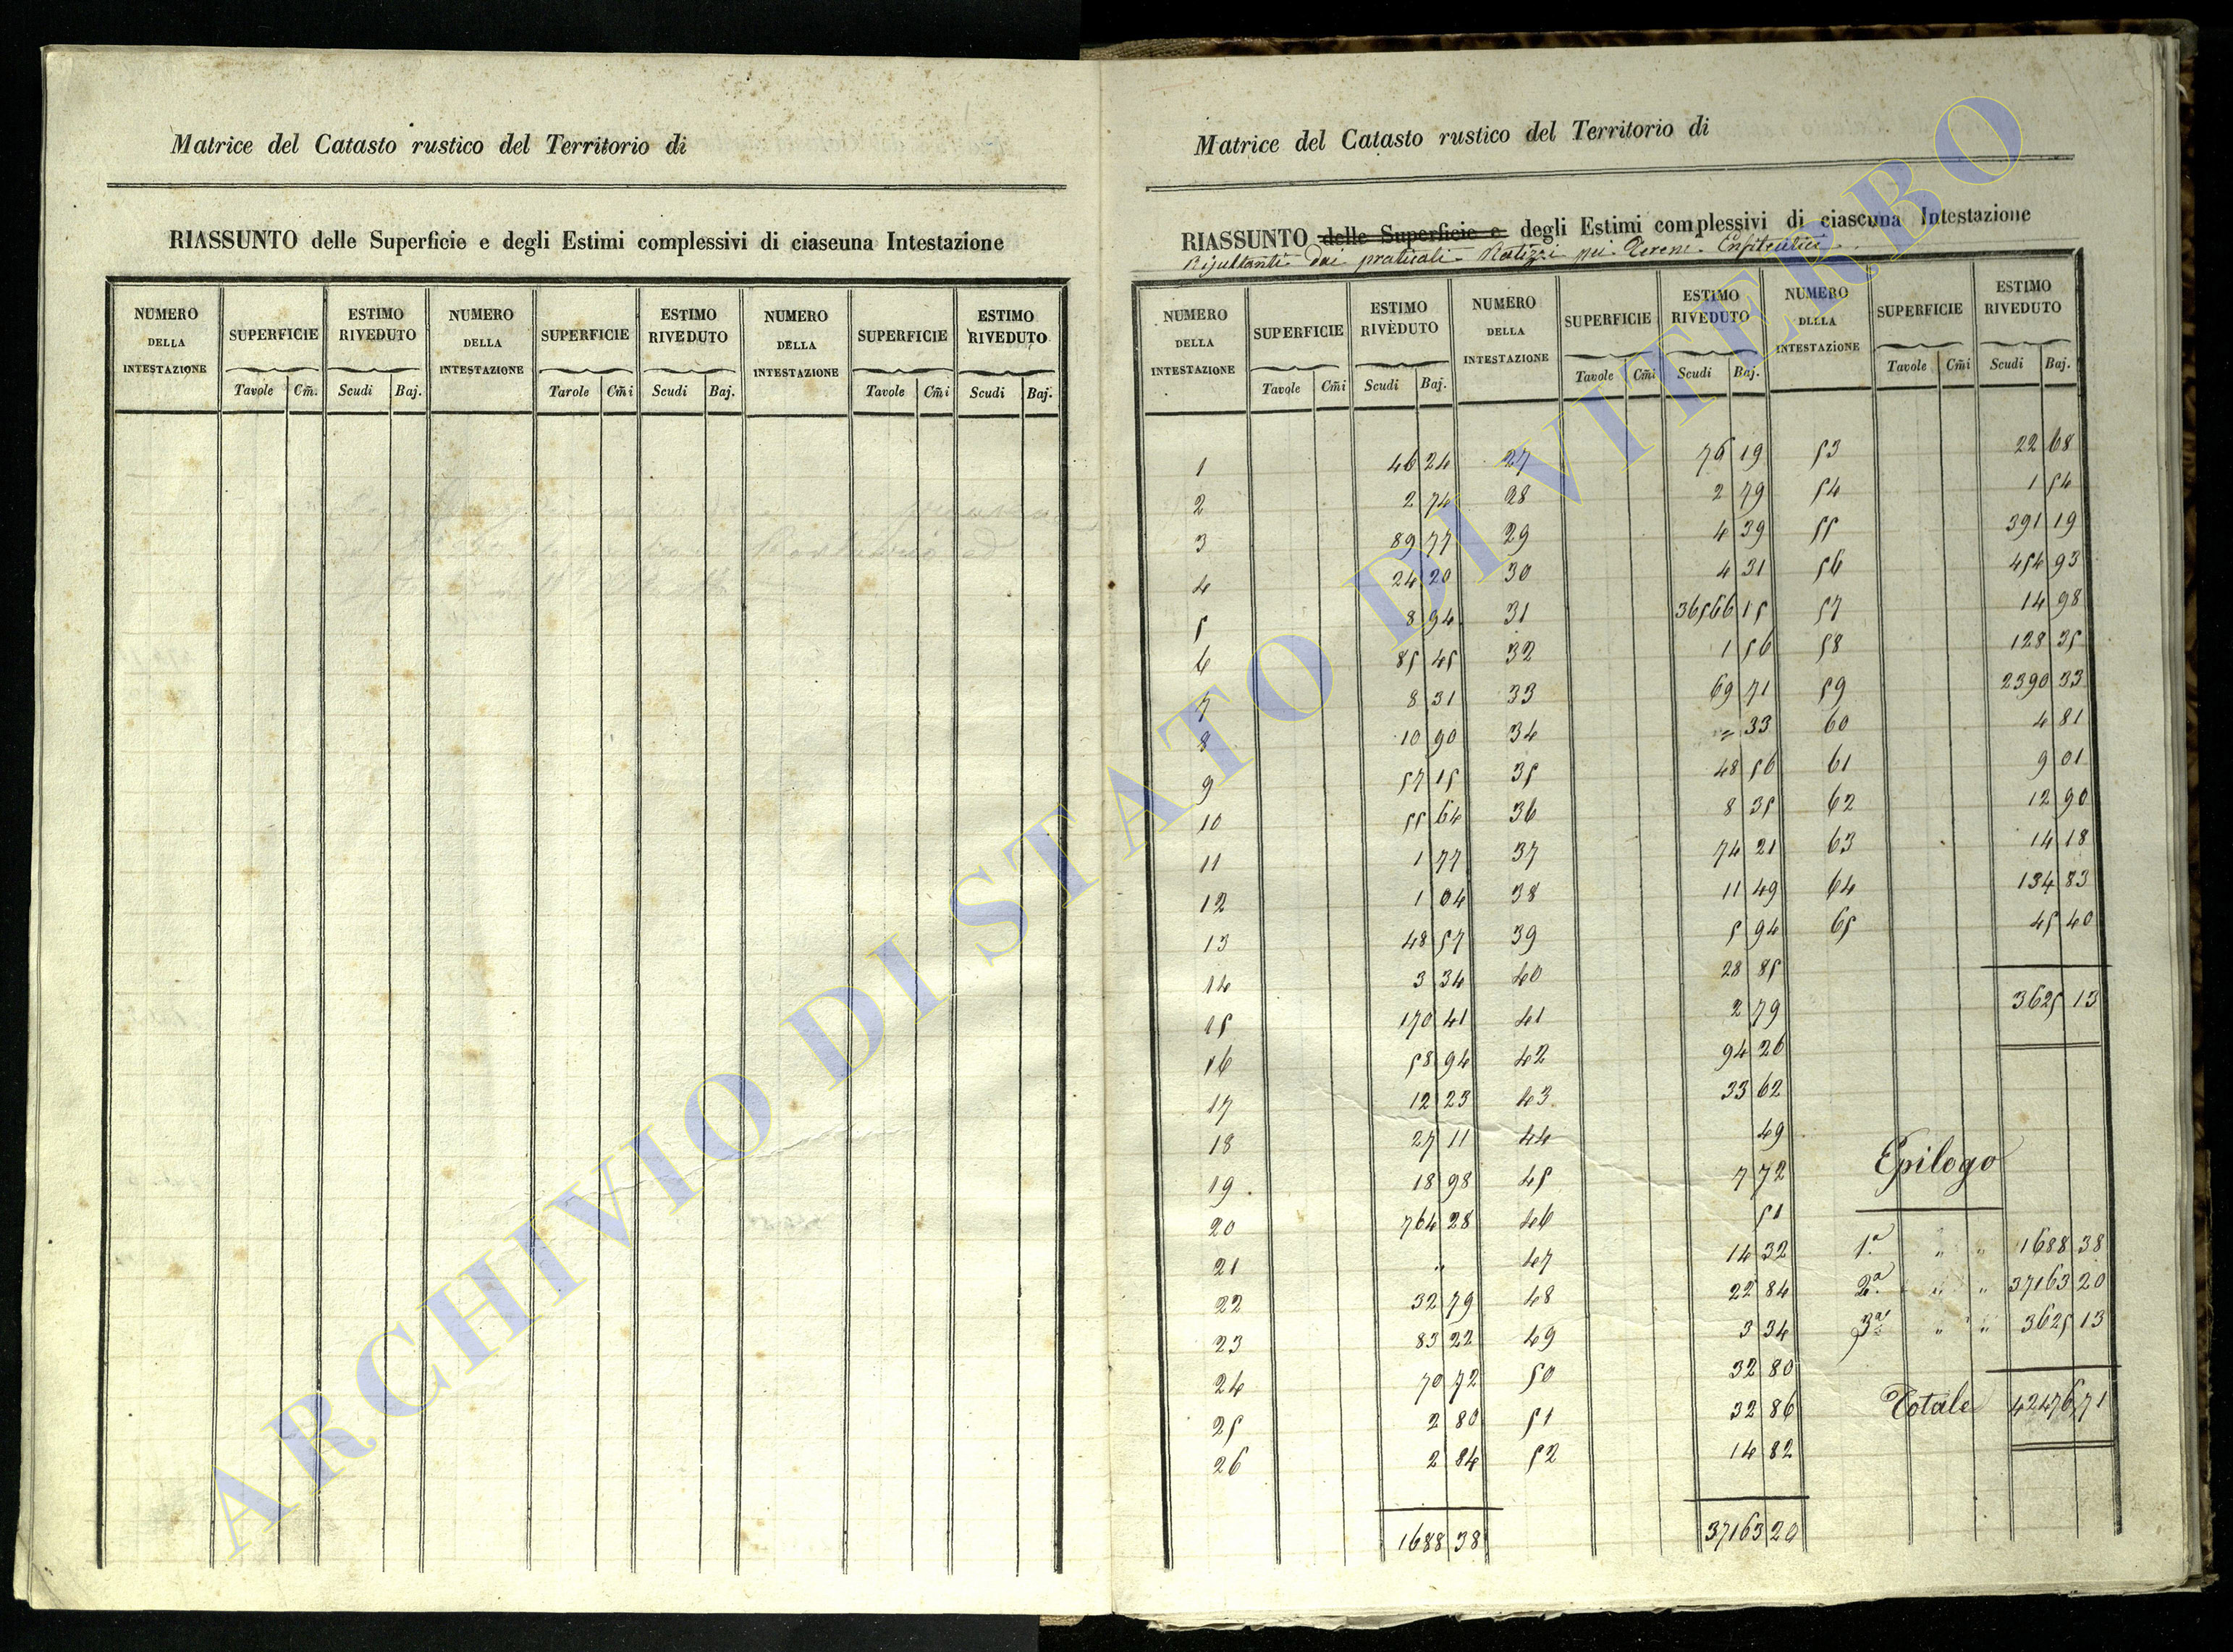 Matrice del Catasto rustico del Territorio di
RIASSUNTO delle Superficie e degli Estimi complessivi di ciaseuna Intestazione
NUMERO DELLA INTESTAZIONE SUPERFICIE ESTIMO RIVEDUTO NUMERO DELLA INTESTAZIONE SUPERFICIE ESTIMO RIVEDUTO NUMERO DELLA INTESTAZIONE SUPERFICIE ESTIMO RIVEDUTO
Tavole Cm̃. Scudi Baj. Tarole Cm̃i Scudi Baj. Tavole Cm̃i Scudi Baj.
Matrice del Catasto rustico del Territorio di
RIASSUNTO delle Superficie e degli Estimi complessivi di ciascuna Intestazione
Risultanti dai praticati Ratizzi pei Terreni Enfiteutici
NUMERO DELLA INTESTAZIONE SUPERFICIE ESTIMO RIVEDUTO NUMERO DELLA INTESTAZIONE SUPERFICIE ESTIMO RIVEDUTO NUMERO DLLLA INTESTAZIONE SUPERFICIE ESTIMO RIVEDUTO
Tavole Cm̃i Scudi Baj. Tavole Cm̃i Scudi Baj. Tavole Cm̃i Scudi Baj.
1 46 24 27 76 19 53 22 68
2 2 74 28 2 79 54 1 54
3 89 77 29 4 39 55 391 19
4 24 20 30 4 31 56 454 93
5 8 94 31 36566 15 57 14 98
6 85 45 32 1 56 58 128 35
7 8 31 33 69 71 59 2390 33
8 10 90 34 = 33 60 4 81
9 57 15 35 48 56 61 9 01
10 55 64 36 8 35 62 12 90
11 1 77 37 74 21 63 14 18
12 1 04 38 11 49 64 134 83
13 48 57 39 5 94 65 45 40
14 3 34 40 28 85
15 170 41 41 2 79 3625 13
16 58 94 42 94 26
17 12 23 43 33 62
18 27 11 44 49 Epilogo
19 18 98 45 7 72
20 764 28 46 51
21 " 47 14 32 1.a " " 1688 38
22 32 79 48 22 84 2.a " " 37163 20
23 83 22 49 3 34 3.a " " 3625 13
24 70 72 50 32 80
25 2 80 51 32 86 Totale 42476 71
26 2 84 52 14 82
1688 38 37163 20
ARCHIVIO DI STATO DI VITERBO